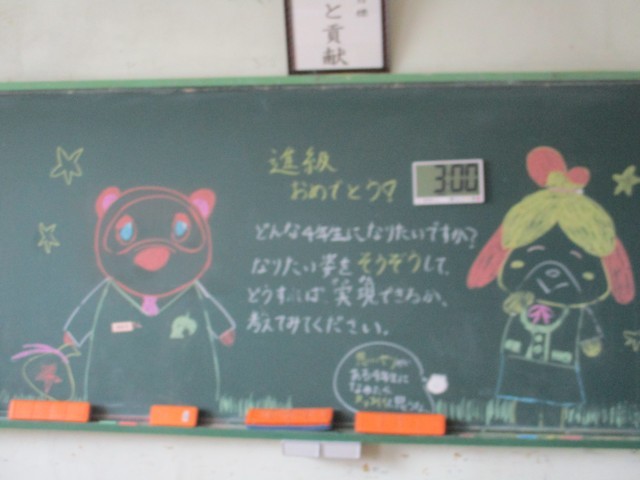 と貢献
進級
おめでとう?
3:00
どんな4年生に、なりたいですか?
なりたい姿をそうぞうして、
どうすれば、実現できるか、
考えてみてください。
ある4年生に